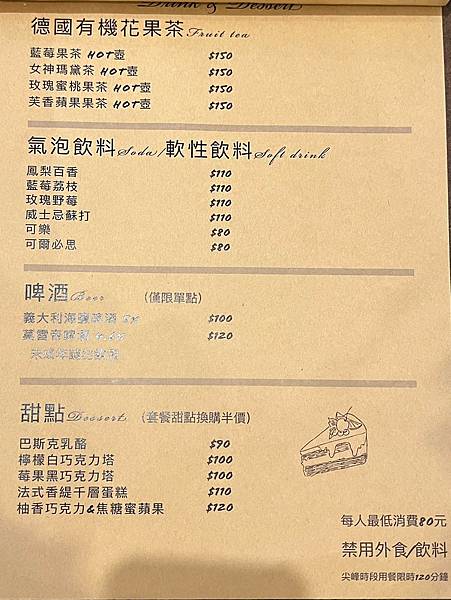 Drink & Dessert
德國有機花果茶 Fruit tea
藍莓果茶 HOT壺 $150
女神瑪黛茶 HOT壺 $150
玫瑰蜜桃果茶 HOT壺 $150
芙香蘋果果茶 HOT壺 $150
氣泡飲料 Soda/軟性飲料 Soft drink
鳳梨百香 $110
藍莓荔枝 $110
玫瑰野莓 $110
威士忌蘇打 $110
可樂 $80
可爾必思 $80
啤酒 Beer (僅限單點)
義大利海 啤酒 $100
莫雷帝啤酒 $120
未成年請勿飲酒
甜點 Dessert (套餐甜點換購半價)
巴斯克乳酪 $90
檸檬白巧克力塔 $100
莓果黑巧克力塔 $100
法式香緹千層蛋糕 $110
柚香巧克力&焦糖蜜蘋果 $120
每人最低消費80元
禁用外食/飲料
尖峰時段用餐限時120分鐘